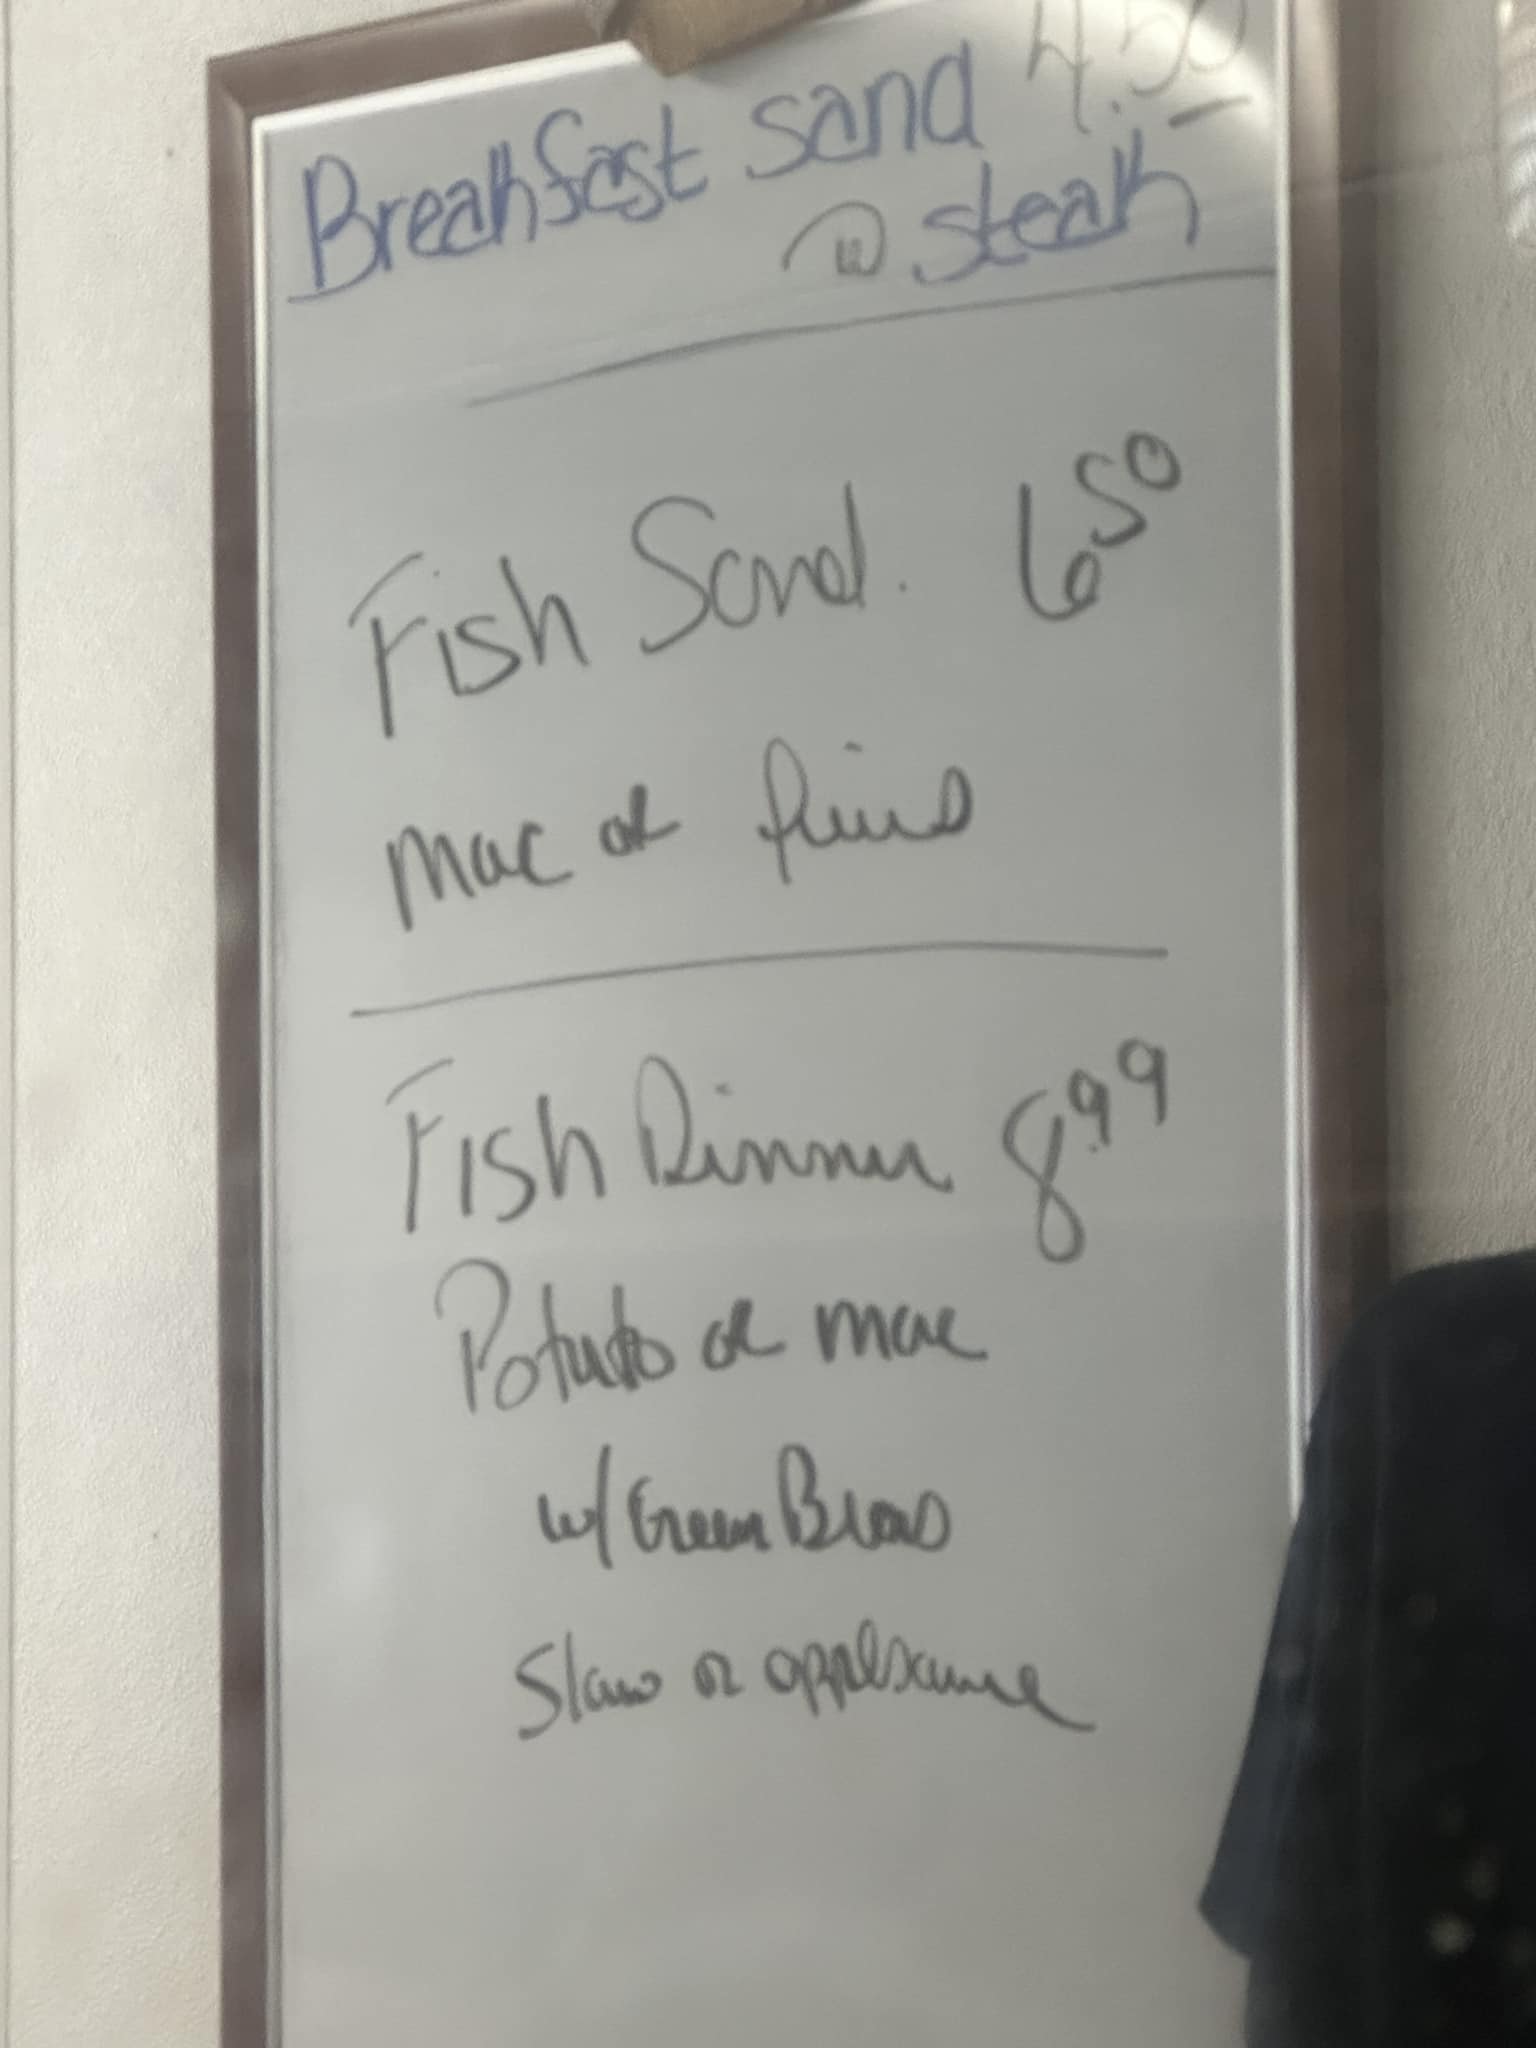 Breakfast sand 4.50
w steak
Fish Sand. 6 50
mac or fries
Fish Dinner 8.99
Potato or mac
w/ Green Beans
Slaw or applesauce